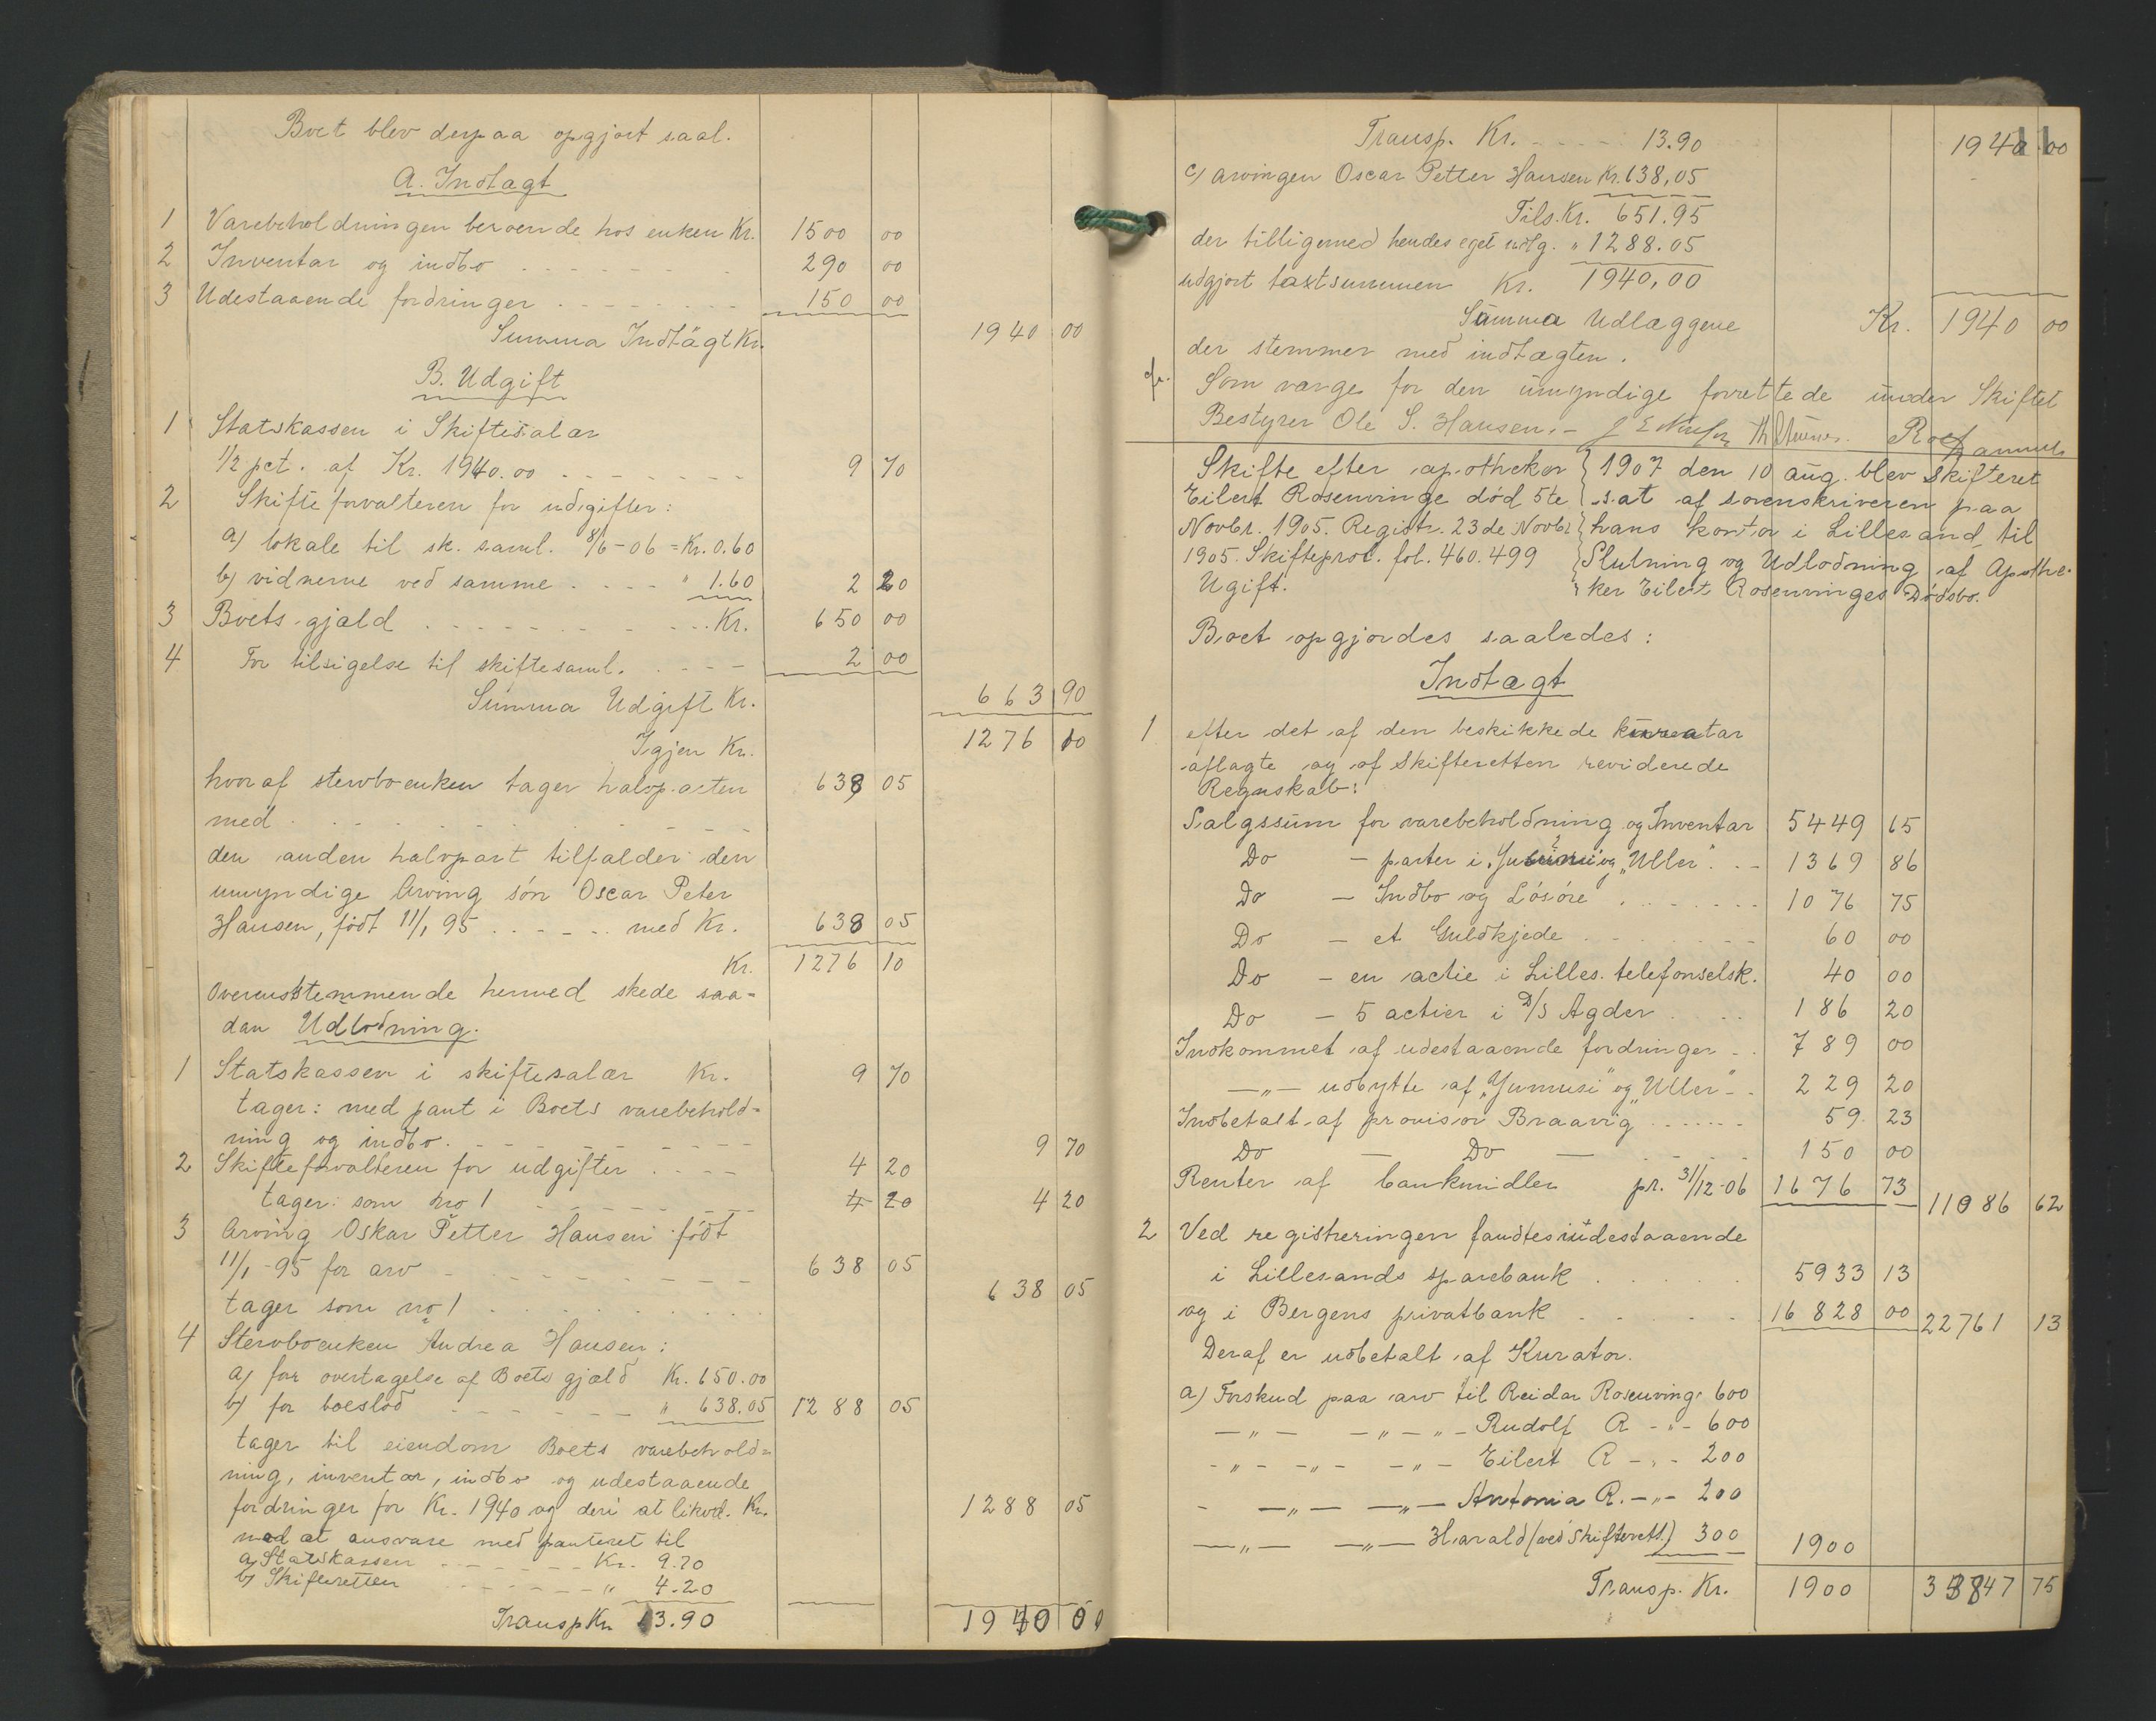 Boet blev derpaa opgjort saal.
A. Indtægt
1 Varebeholdningen beroende hos enken Kr. 1500 00
2 Inventar og indbo 290 00
3 Udestaaende fordringer 150 00
Summa Indtægt Kr. 1940 00
B. Udgift
1 Statskassen i Skiftesalær
1/2 pct. af Kr. 1940.00 9 70
2 Skifteforvalteren for udgifter:
a) lokale til sk. saml. 8/6-06 = Kr. 0.60
b) vidnerne ved samme " 1.60 2 20
3 Boets gjæld Kr. 650 00
4 For tilsigelse til skiftesaml. 2 00
Summa Udgift Kr. 663 90
Igjen Kr. 1276 10
hvoraf stervboenken tager halvparten 638 05
med
den anden halvpart tilfalder den
umyndige Arving søn Oscar Peter
Hansen, født 11/1 95 med Kr. 638 05
Kr. 1276 10
Overensstemmende hermed skede saa-
dan Udlodning.
1 Statskassen i skiftesalær Kr. 9 70
tager: med pant i Boets varebehold-
ning og indbo. 9 70
2 Skifteforvalteren for udgifter 4 20
tager: som no 1 4 20 4 20
3 Arving Oskar Petter Hansen født
11/1-95 for arv 638 05
tager som no 1 638 05
4 Stervboenken Andrea Hansen:
a) for overtagelse af Boets gjæld Kr. 650.00
b) for boeslod " 638.05 1288 05
tager til eiendom Boets varebehold-
ning, inventar, indbo og udestaaende
fordringer for Kr. 1940 og deri at likvid. Kr. 1288 05
mod at ansvare med panteret til
a) Statskassen Kr. 9.70
b) Skifteretten " 4.20
Transp Kr. 13.90 1940 00
Transp. Kr. 13.90 1940 00
c) arvingen Oscar Petter Hansen Kr. 638,05
Tils. Kr. 651.95
der tilligemed hendes eget udlg. " 1288.05
udgjort taxtsummen Kr. 1940,00
Summa Udlæggene Kr. 1940 00
der stemmer med indtægten.
Som værge for den umyndige forrettede under Skiftet
Bestyrer Ole S. Hansen.-
Skifte efter apotheker
Eilert Rosenvinge død 5te
Novbr. 1905. Registr. 23de Novbr
1905. Skifteprot. fol. 460. 499
Ugift.
1907 den 10 aug. blev Skifteret
sat af sorenskriveren paa
hans kontor i Lillesand til
Slutning og Udlodning af Apothe-
ker Eilert Rosenvinges Dødsbo.
Boet opgjordes saaledes:
Indtægt
1 efter det af den beskikkede kurator
aflagte og af Skifteretten reviderede
Regnskab:
Salgssum for varebeholdning og Inventar 5449 65
Do — parter i og "Uller" 1369 86
Do — Indbo og Løsøre 1076 75
Do — et Guldkjede 60 00
Do — en actie i Lilles. telefonselsk. 40 00
Do — 5 actier i D/S Agder 186 20
Indkommet af udestaaende fordringer 789 00
—"— udbytte af og "Uller" 229 20
Indbetalt af provisor Braavig 59 23
Do — Do — 150 00
Renter af bankmidler pr. 31/12-06 1676 73 11086 62
2 Ved registreringen fandtes indestaaende
i Lillesands sparebank 5933 13
og i Bergens privatbank 16828 00 22761 13
Deraf er udbetalt af Kurator.
a) Forskud paa arv til Reidar Rosenvinge 600
—"— —"—"— Rudolf R —"— 600
—"— —"— —"— Eilert R —"— 200
—"— —"— Antonia R. —"— 200
—"— —"— Harald (ved Skifterett.) 300 1900
Transp. Kr. 1900 33847 75